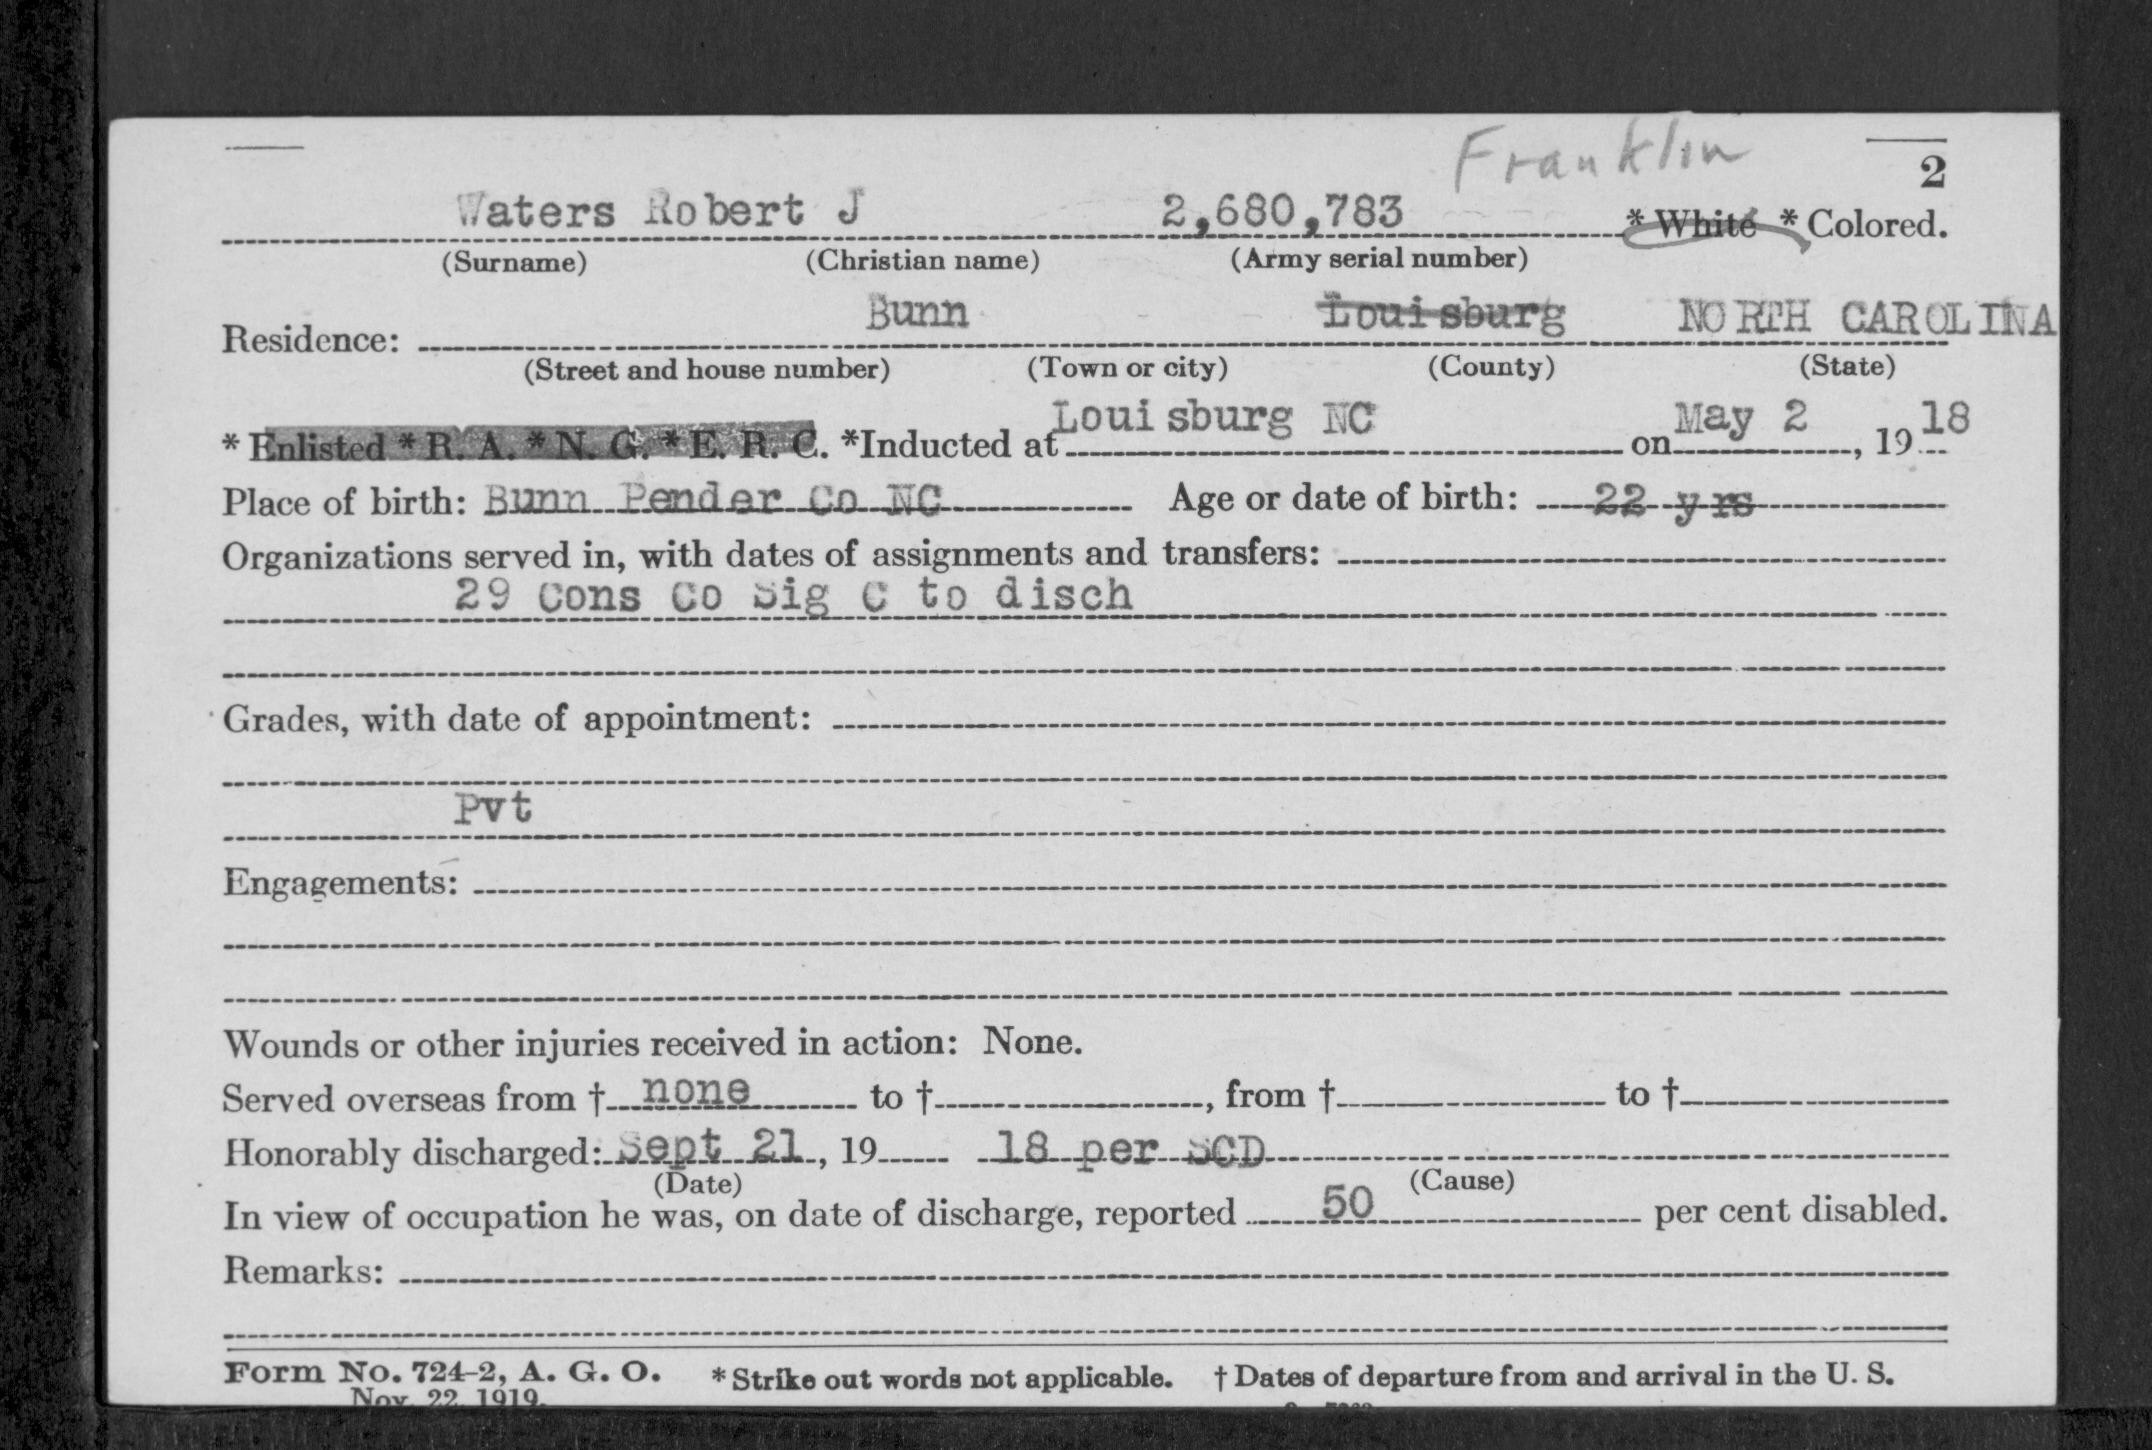 Franklin
2
Waters Robert J 2,680,783 * White * Colored.
(Surname) (Christian name) (Army serial number)
Residence: Bunn Louisburg NORTH CAROLINA
(Street and house number) (Town or city) (County) (State)
* Enlisted * R. A. * N. G. * E. R. C. *Inducted at Louisburg NC on May 2, 19 18
Place of birth: Bunn Pender Co NC Age or date of birth: 22 yrs
Organizations served in, with dates of assignments and transfers:
29 Cons Co Sig C to disch
Grades, with date of appointment:
Pvt
Engagements:
Wounds or other injuries received in action: None.
Served overseas from † none to †, from † to †
Honorably discharged: Sept 21, 19 18 per SCD
(Date) (Cause)
In view of occupation he was, on date of discharge, reported 50 per cent disabled.
Remarks:
Form No. 724-2, A. G. O. * Strike out words not applicable. † Dates of departure from and arrival in the U. S.
Nov. 22, 1919.